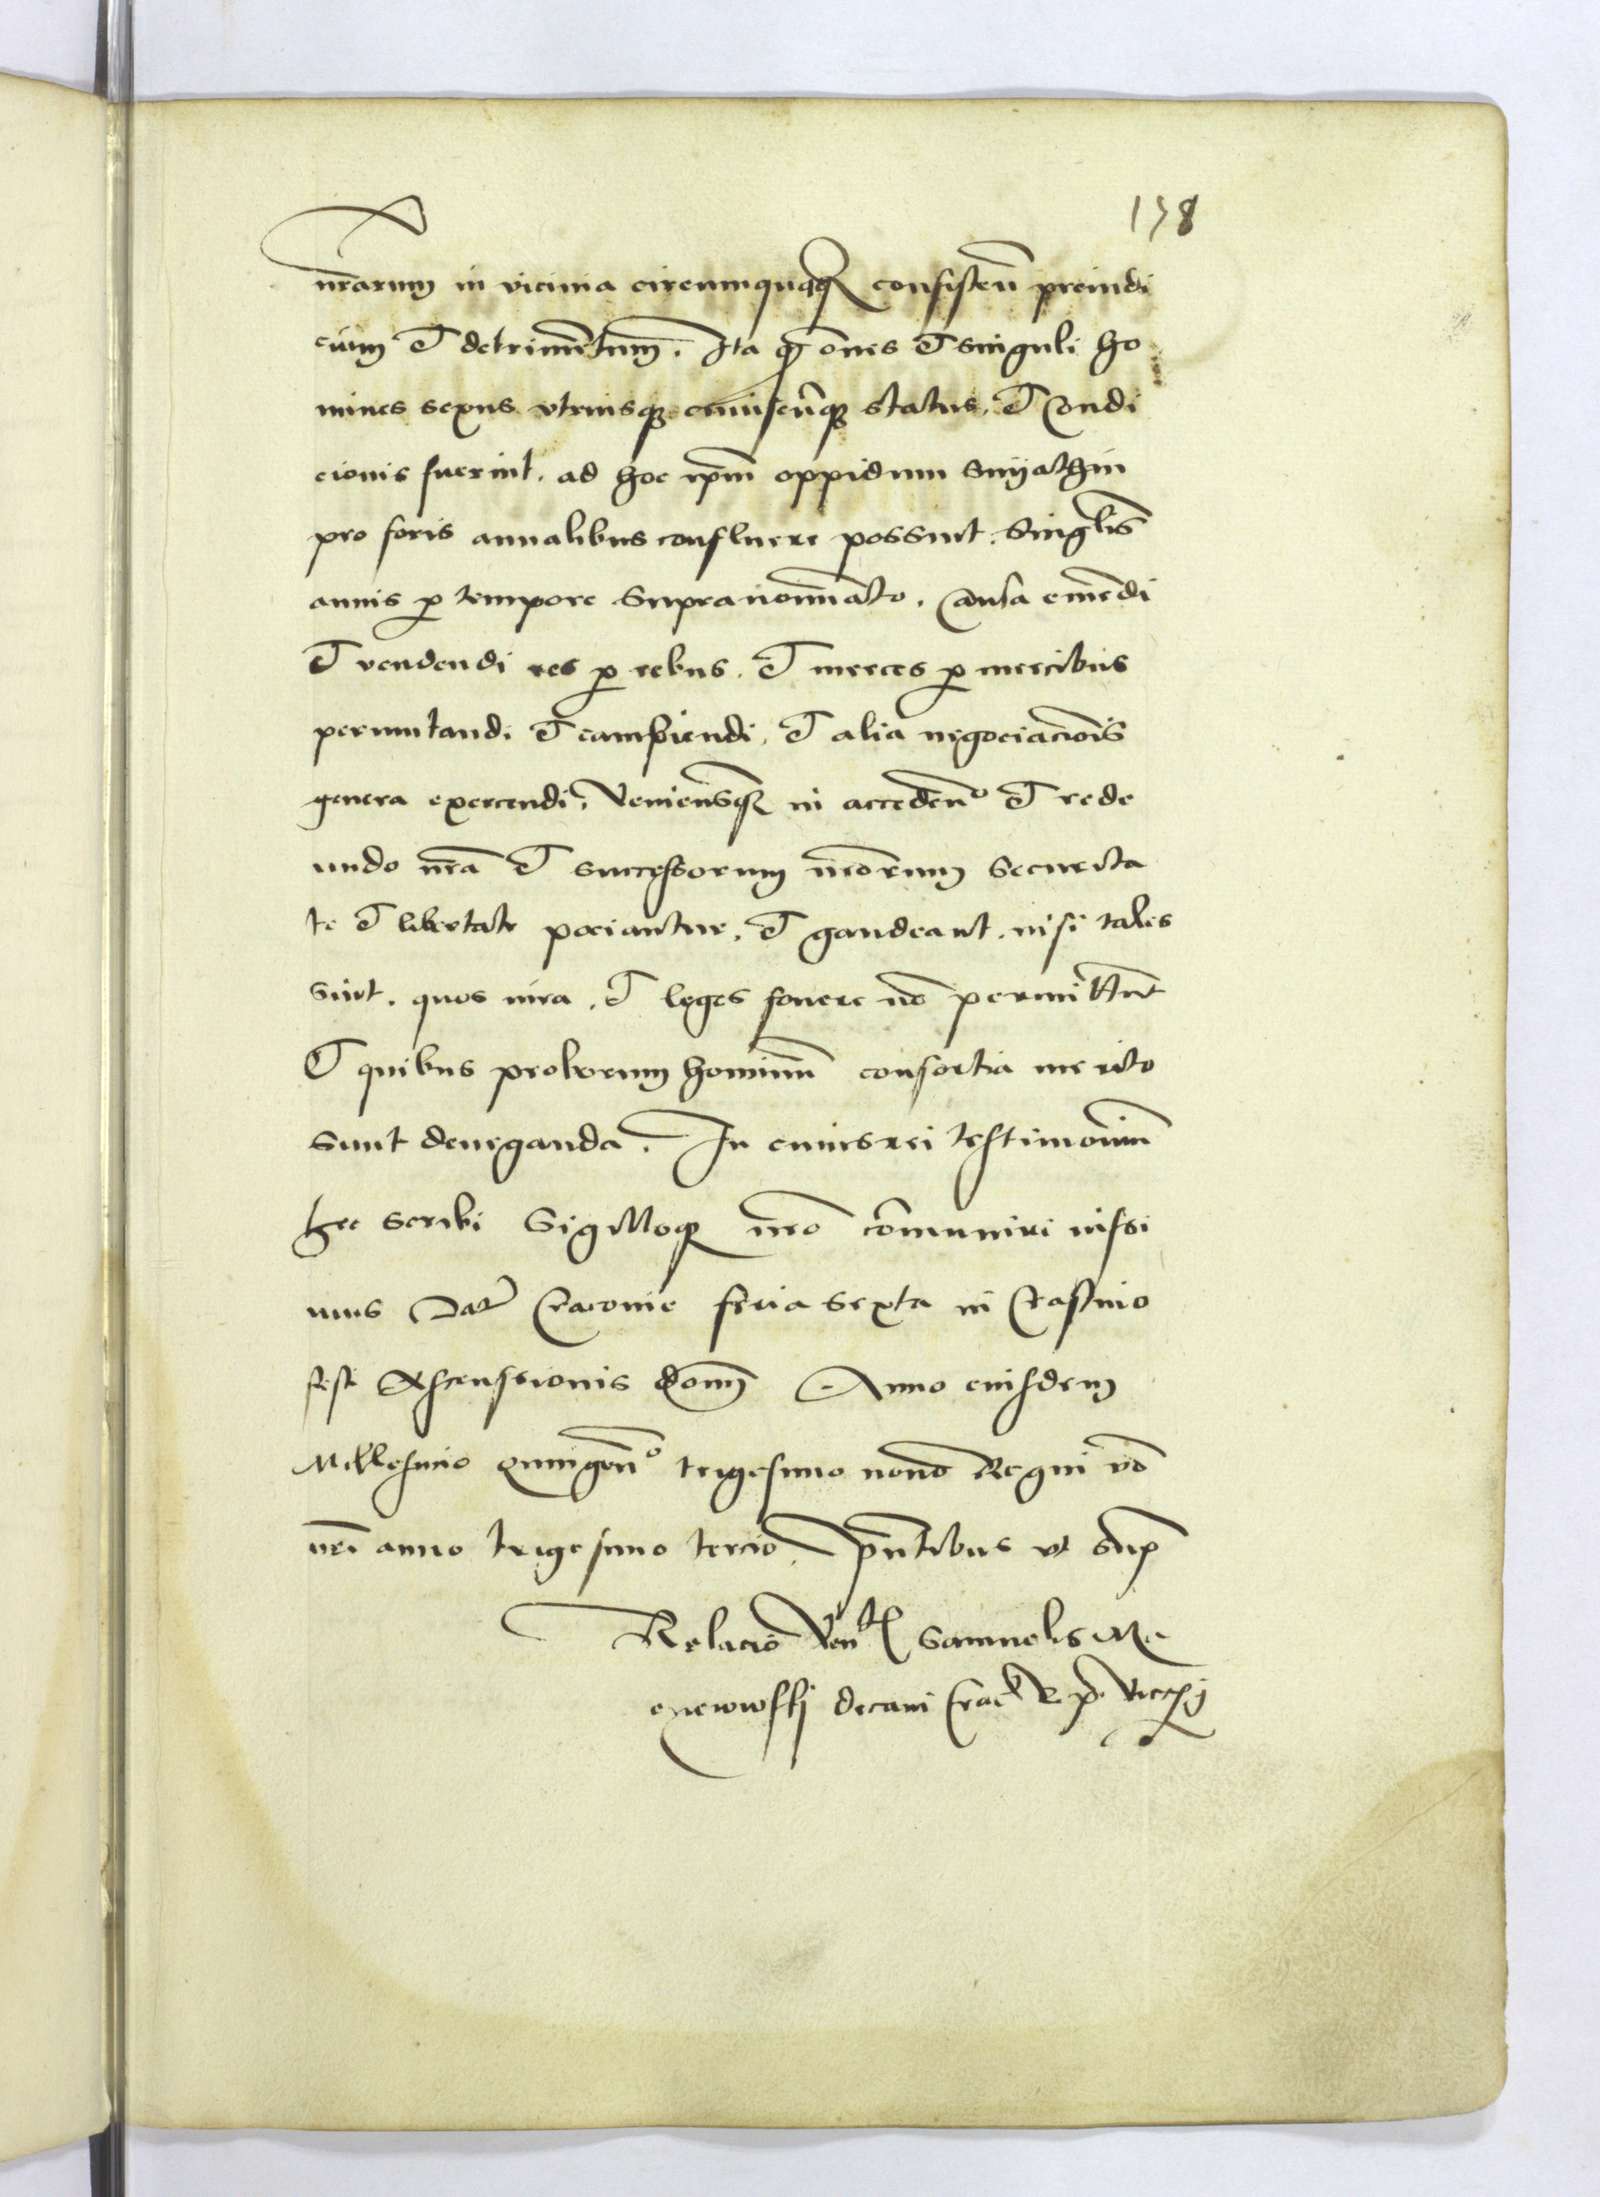 138
nr̄arum in vicinia circumquaq; consisten̄ preiudi
cium et detrimentum. Ita q̄ om̄es et singuli ho
mines sexus vtriusq; cuiuscunq; status, et Condi
cionis fuerint. ad hoc ip̄m oppidum Snyathin
pro foris annalibus confluere possint. Singul̄is
annis p tempore supranominato. Causa emendi
et vendendi res p rebus. et merces p mercibus
permutandi et cambiendi, et alia negociacionis
genera exercendi. Veniensq; in acceden̄o et rede
undo nr̄a et successorum nr̄orum securita
te et libertate pociantur. et gaudeant. nisi tales
sint. quos iura. et leges fouere nō permittunt
et quibus proborum hominum consortia merito
sunt deneganda. In cuius rei testimonium
hec scribi Sigilloq; nr̄o cōmuniri iussi
mus Dat̄ Cracouie feria sexta in Crastino
festi Ascenssionis domī Anno eiusdem
Millesimo Quingen̄o trigesimo nono Regni vō
nr̄i anno trigesimo tercio. pn̄tibus vt sup
Relacio Ven̄ Samuelis Ma
czyewwskj decani Crac̄ R. p. Vicecan̄